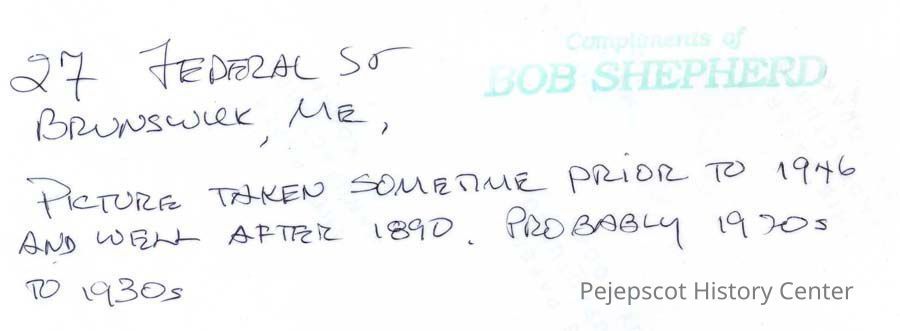 Compliments of
BOB SHEPHERD
27 FEDERAL ST
BRUNSWICK, ME,
PICTURE TAKEN SOMETIME PRIOR TO 1946
AND WELL AFTER 1890. PROBABLY 1920s
TO 1930s
Pejepscot History Center